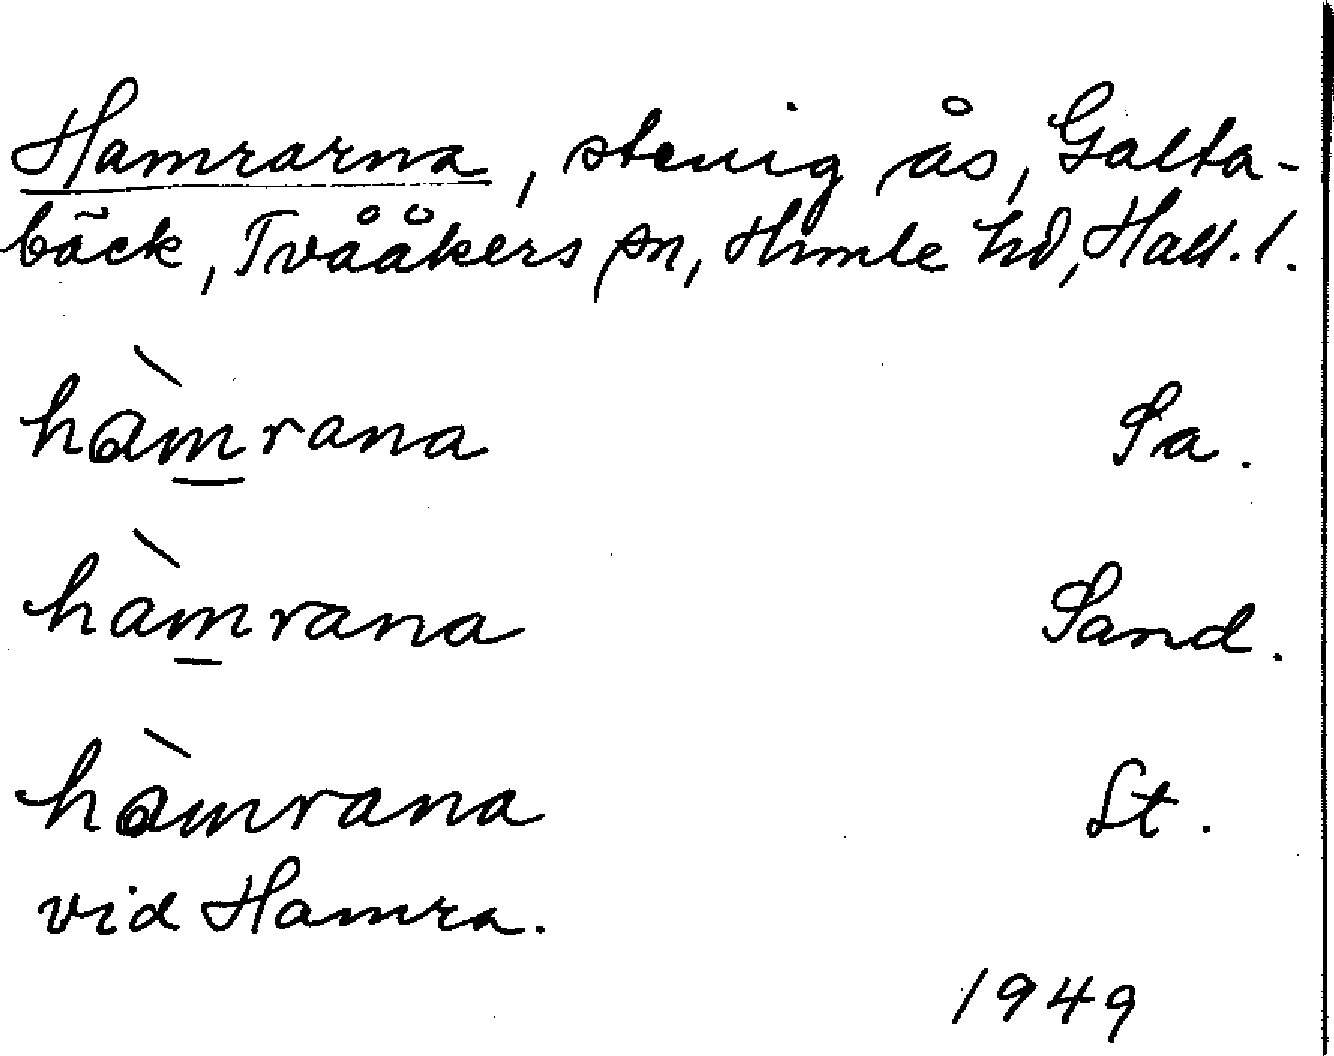 Hamrarna, stenig ås, Galta-
bäck, Tvååkers sn, Himle hd, Hall. l.
hàmrana Sa.
hàmrana Sand.
hàmrana St.
vid Hamra.
1949